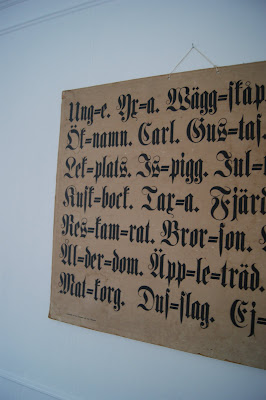 Ung=e. Yx=a. Wägg=skåp
Ök=namn. Carl. Gus=taf.
Lek=plats. Is=pigg. Jul=
Kusk=bock. Tax=a. Fjärd
Res=kam=rat. Bror=son.
Ål=der=dom. Äpp=le=träd.
Mat=korg. Dus=slag. Ej=